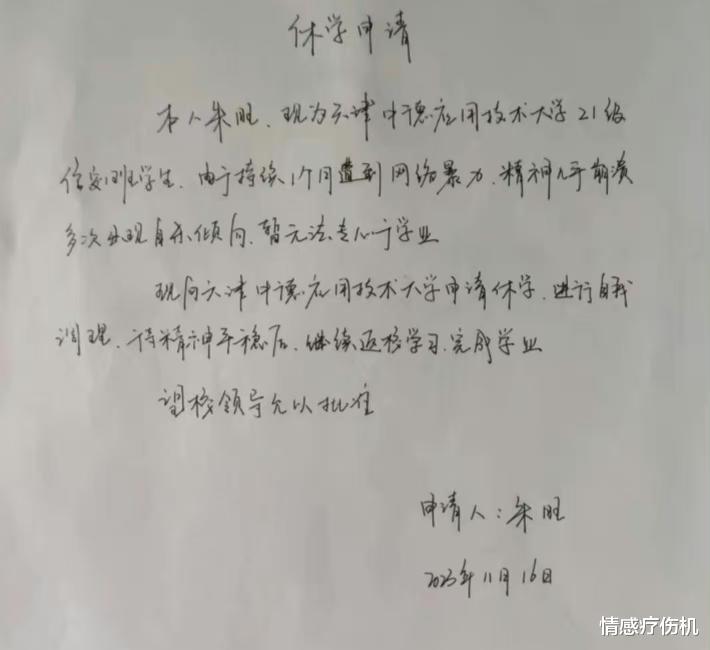 休学申请
本人朱旺、现为天津中德应用技术大学21级
信安1班学生、由于持续1个月遭到网络暴力、精神几乎崩溃
多次出现自杀倾向、暂无法专心于学业
现向天津中德应用技术大学申请休学、进行自我
调理、待精神平稳后、继续返校学习、完成学业
望校领导允以批准
申请人：朱旺
2023年11月16日
情感疗伤机